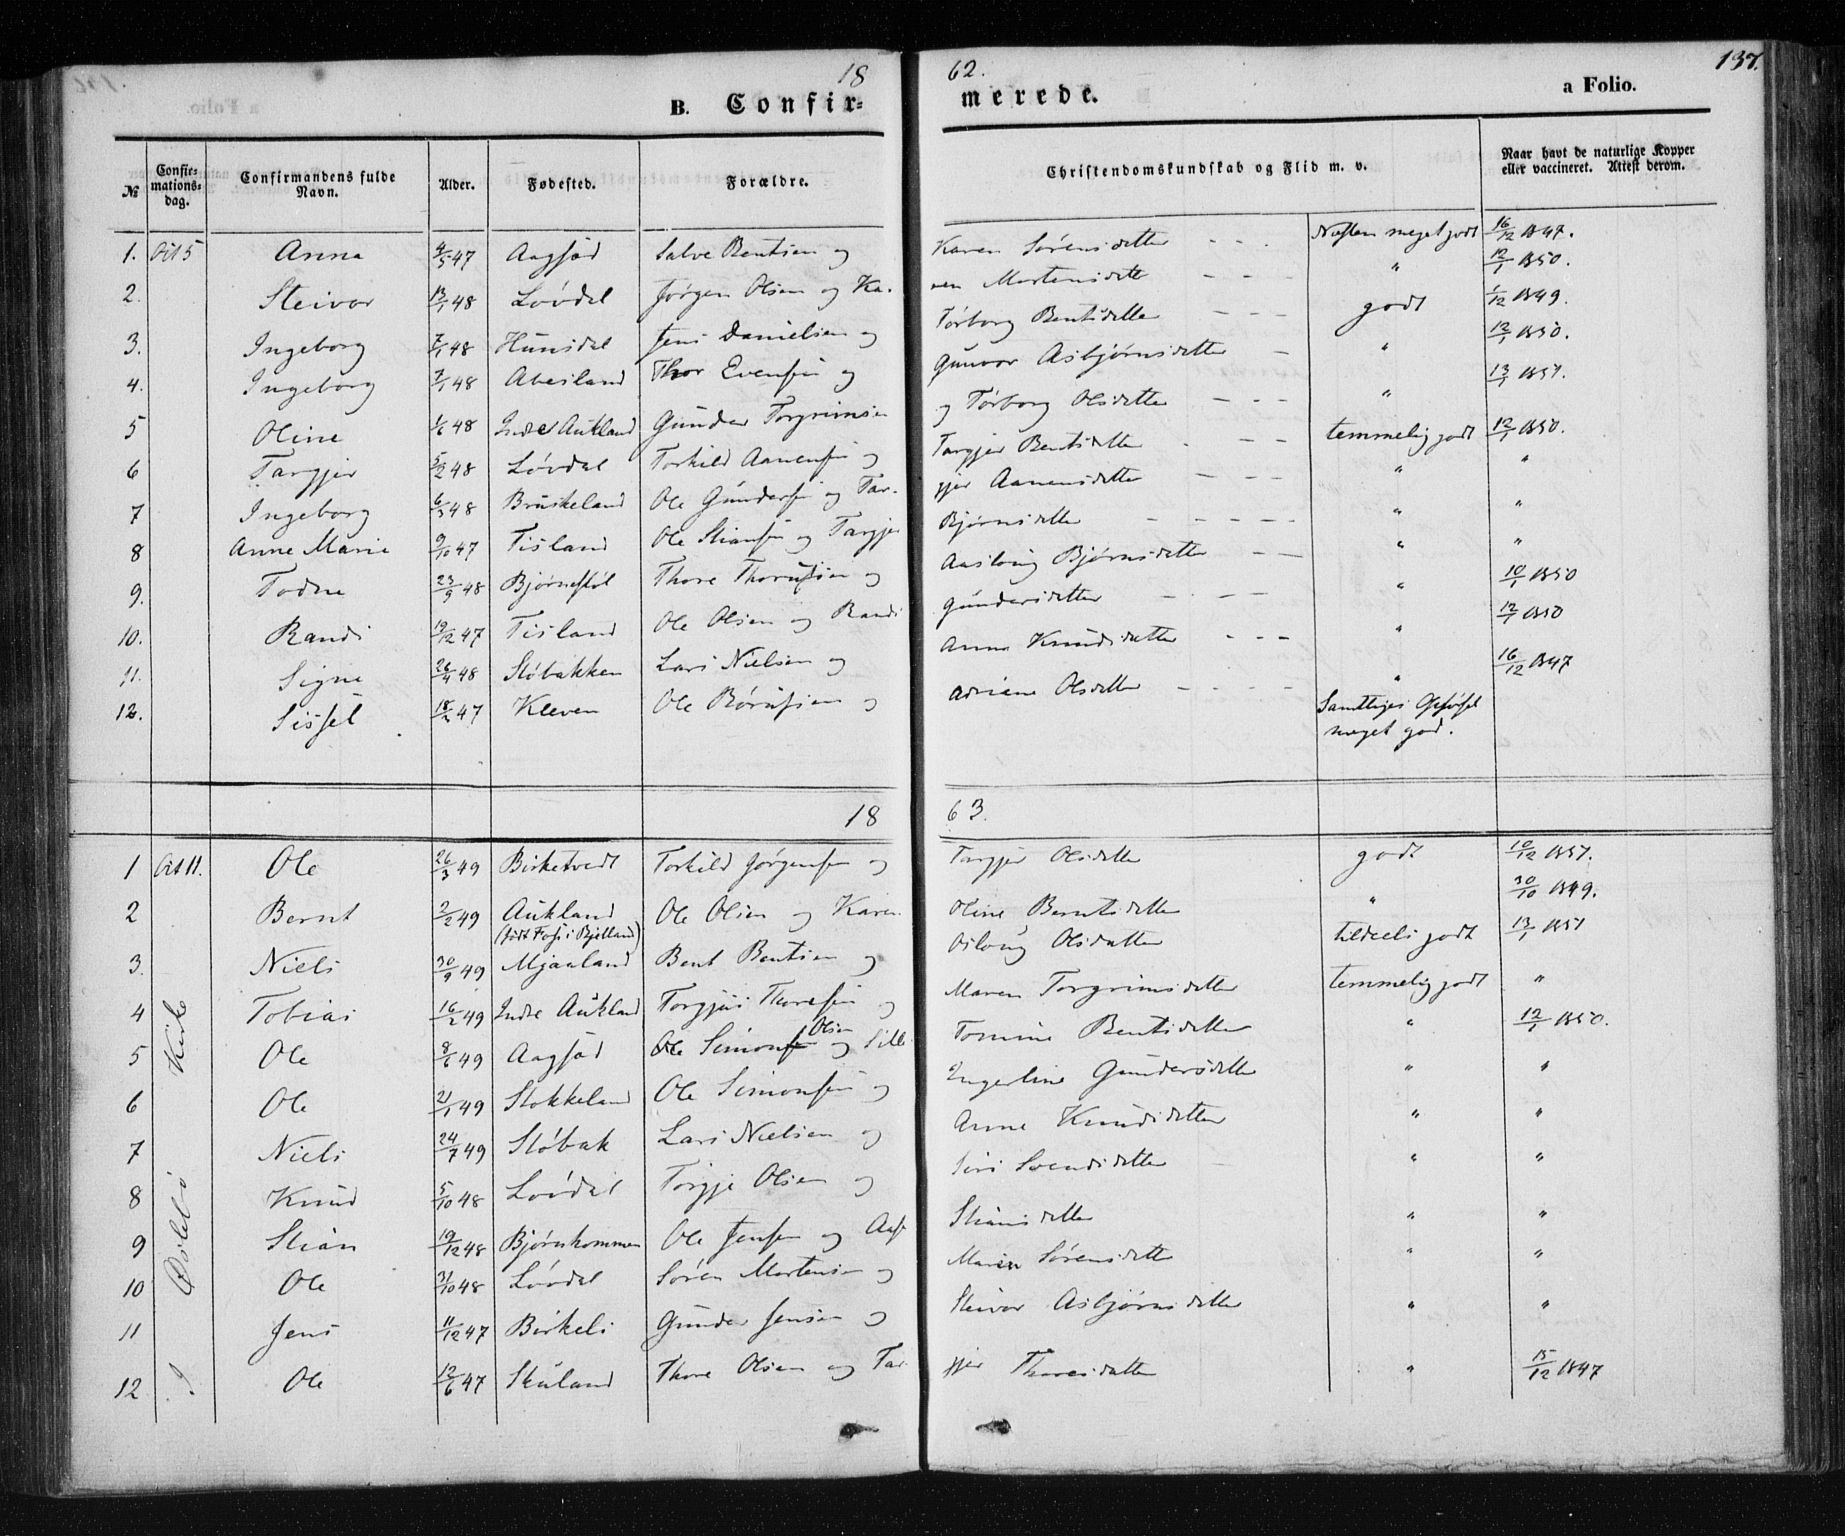 18 62. 137.
B. Confirmerede. a Folio.
№ Confirmationsdag. Confirmandens fulde Navn. Alder. Fødested. Forældre. Christendomskundskab og Flid m. v. Naar havt de naturlige Kopper eller vaccineret. Attest derom.
1. Oct 5 Anna 4/5 47 Aagsød Salve Bentsen og Karen Sørensdatter - - - Næsten meget godt 16/12 1847.
2. Steivor 13/1 48 Løvdal Jørgen Olsen og Karen Mortensdatt - - - " 12/1 1850.
3. Ingeborg 7/1 48 Hunsdal Jens Danielsen og Tørborg Bentsdatter - - - godt 1/12 1849.
4. Ingeborg 7/1 48 Abesland Thor Evensen og Gunvor Asbjørnsdatter - " 12/1 1850.
5 Oline 1/6 48 Indre Aukland Gunder Torgrimsen og Tørborg Olsdatter - - - " 13/1 1851.
6 Targjer 5/2 48 Løvdal Torkild Aanensen og Targjer Bentsdatter - - - temmelig godt 12/1 1850.
7 Ingeborg 6/3 48 Bruskeland Ole Gundersen og Targjer Aanensdatter - - - " "
8 Anne Marie 9/10 47 Tisland Ole Stiansen og Targjer Bjørnsdatter - - - - " "
9. Todne 23/3 48 Bjørnestøl Thore Thorsen og Aaslaug Bjørnsdatter - - " "
10. Randi 19/12 47 Tisland Ole Olsen og Randi Gundersdatter - - - " 10/1 1850
11. Signe 26/4 48 Støbakken Lars Nielsen og Anne Knudsdatter - - - " 12/1 1850
12. Sissel 18/2 47 Kleven Ole Børufsen og Adriane Olsdatter - - - - " 16/12 1847
Samtliges Opførsel meget god.
18 63.
1 Oct 11. Ole 26/3 49 Birketvedt Torkild Jørgensen og Targjer Olsdatter godt 10/12 1851.
2 Bernt 2/2 49 Aukland (født Foss i Bjelland) Ole Olsen og Karen Oline Berntsdatter " 30/10 1849.
3. Niels 30/9 49 Mjaaland Bent Bentsen og Osloug Olsdatter tildeels godt 13/1 1851
4 Tobias 16/2 49 Indre Aukland Torgjus Thoresen og Maren Torgrimsdatter temmelig godt "
5 Ole 8/6 49 Aagsød Ole Simonsen Olsen og Sille Tomine Bentsdatter " 12/1 1850.
6 Ole 21/1 49 Stokkeland Ole Simonsen og Engerline Gundersdatter " "
7 Niels 24/7 49 Støbak Lars Nielsen og Anne Knudsdatter " "
8 Knud 5/10 48 Løvdal Torgje Olsen og Siri Svendsdatter " "
9 Stian 19/12 48 Bjørnkommen Ole Jensen og Aase Stiansdatter " "
10 Ole 31/10 48 Løvdal Søren Mortensen og Maren Sørensdatter " "
11 Jens 11/12 47 Birkeli Gunder Jensen og Steivor Asbjørnsdatter " "
12 Ole 12/6 47 Skuland Thore Olsen og Targjer Thoresdatter " 15/12 1847
I Øslebø Kirke